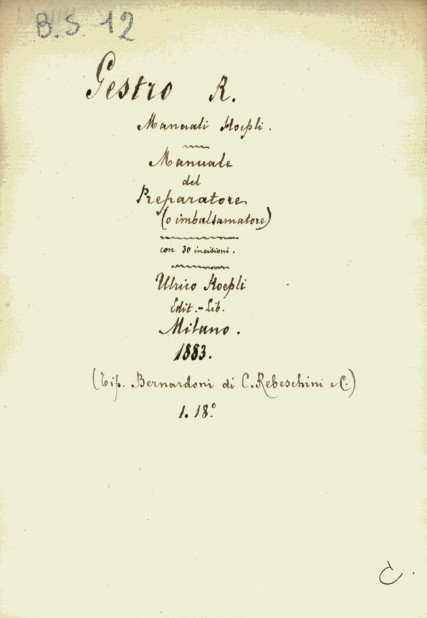 B.S. 12
Gestro R.
Manuali Hoepli.
Manuale
del
Preparatore
(o imbalsamatore)
con 30 incisioni.
Ulrico Hoepli
Edit.-Lib.
Milano.
1883.
(Tip. Bernardoni di C. Rebeschini e C.)
1. 18.º
C.